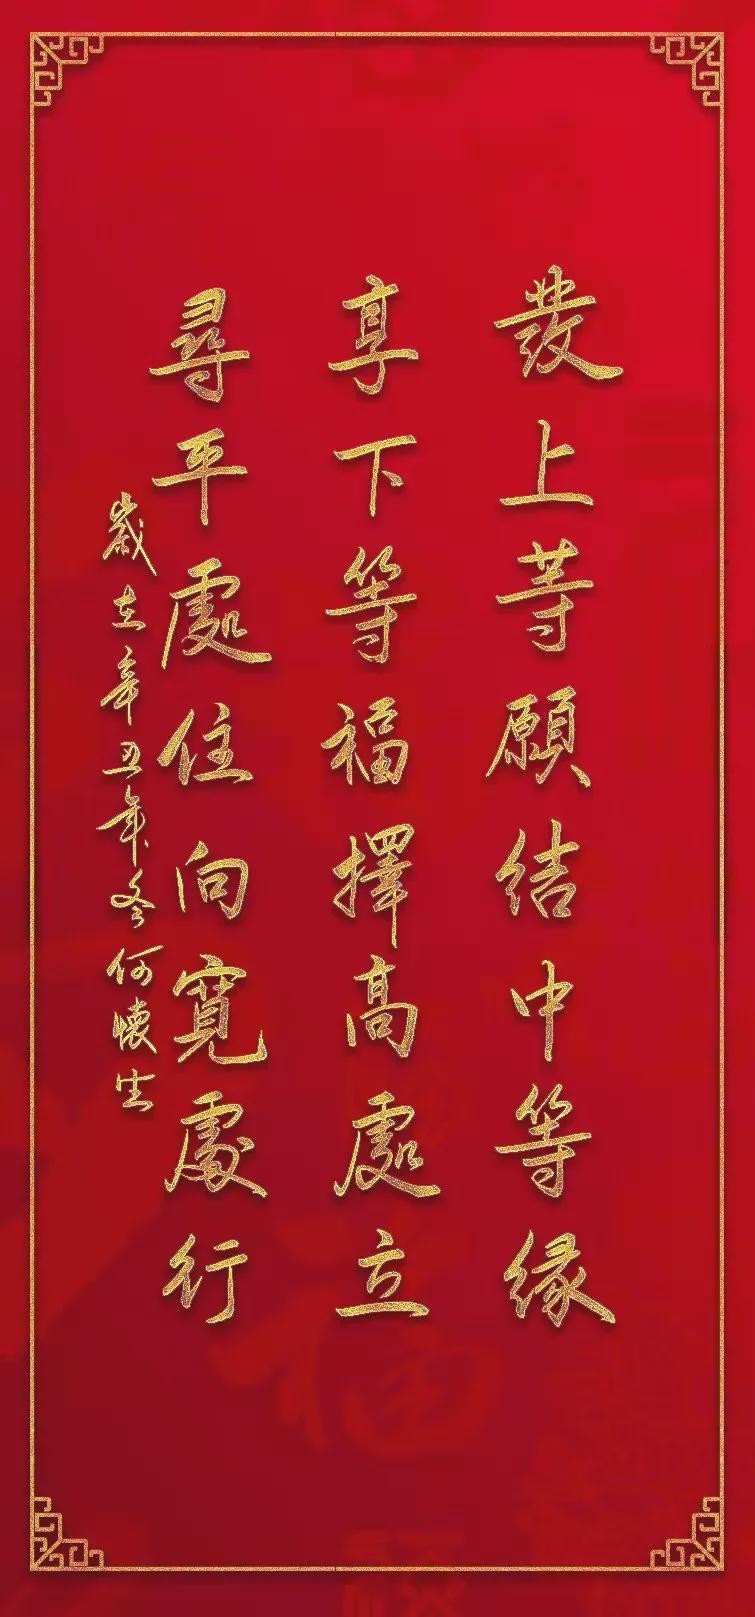 發上等願結中等緣
享下等福擇高處立
尋平處住向寬處行
歲在辛丑年冬何懷生